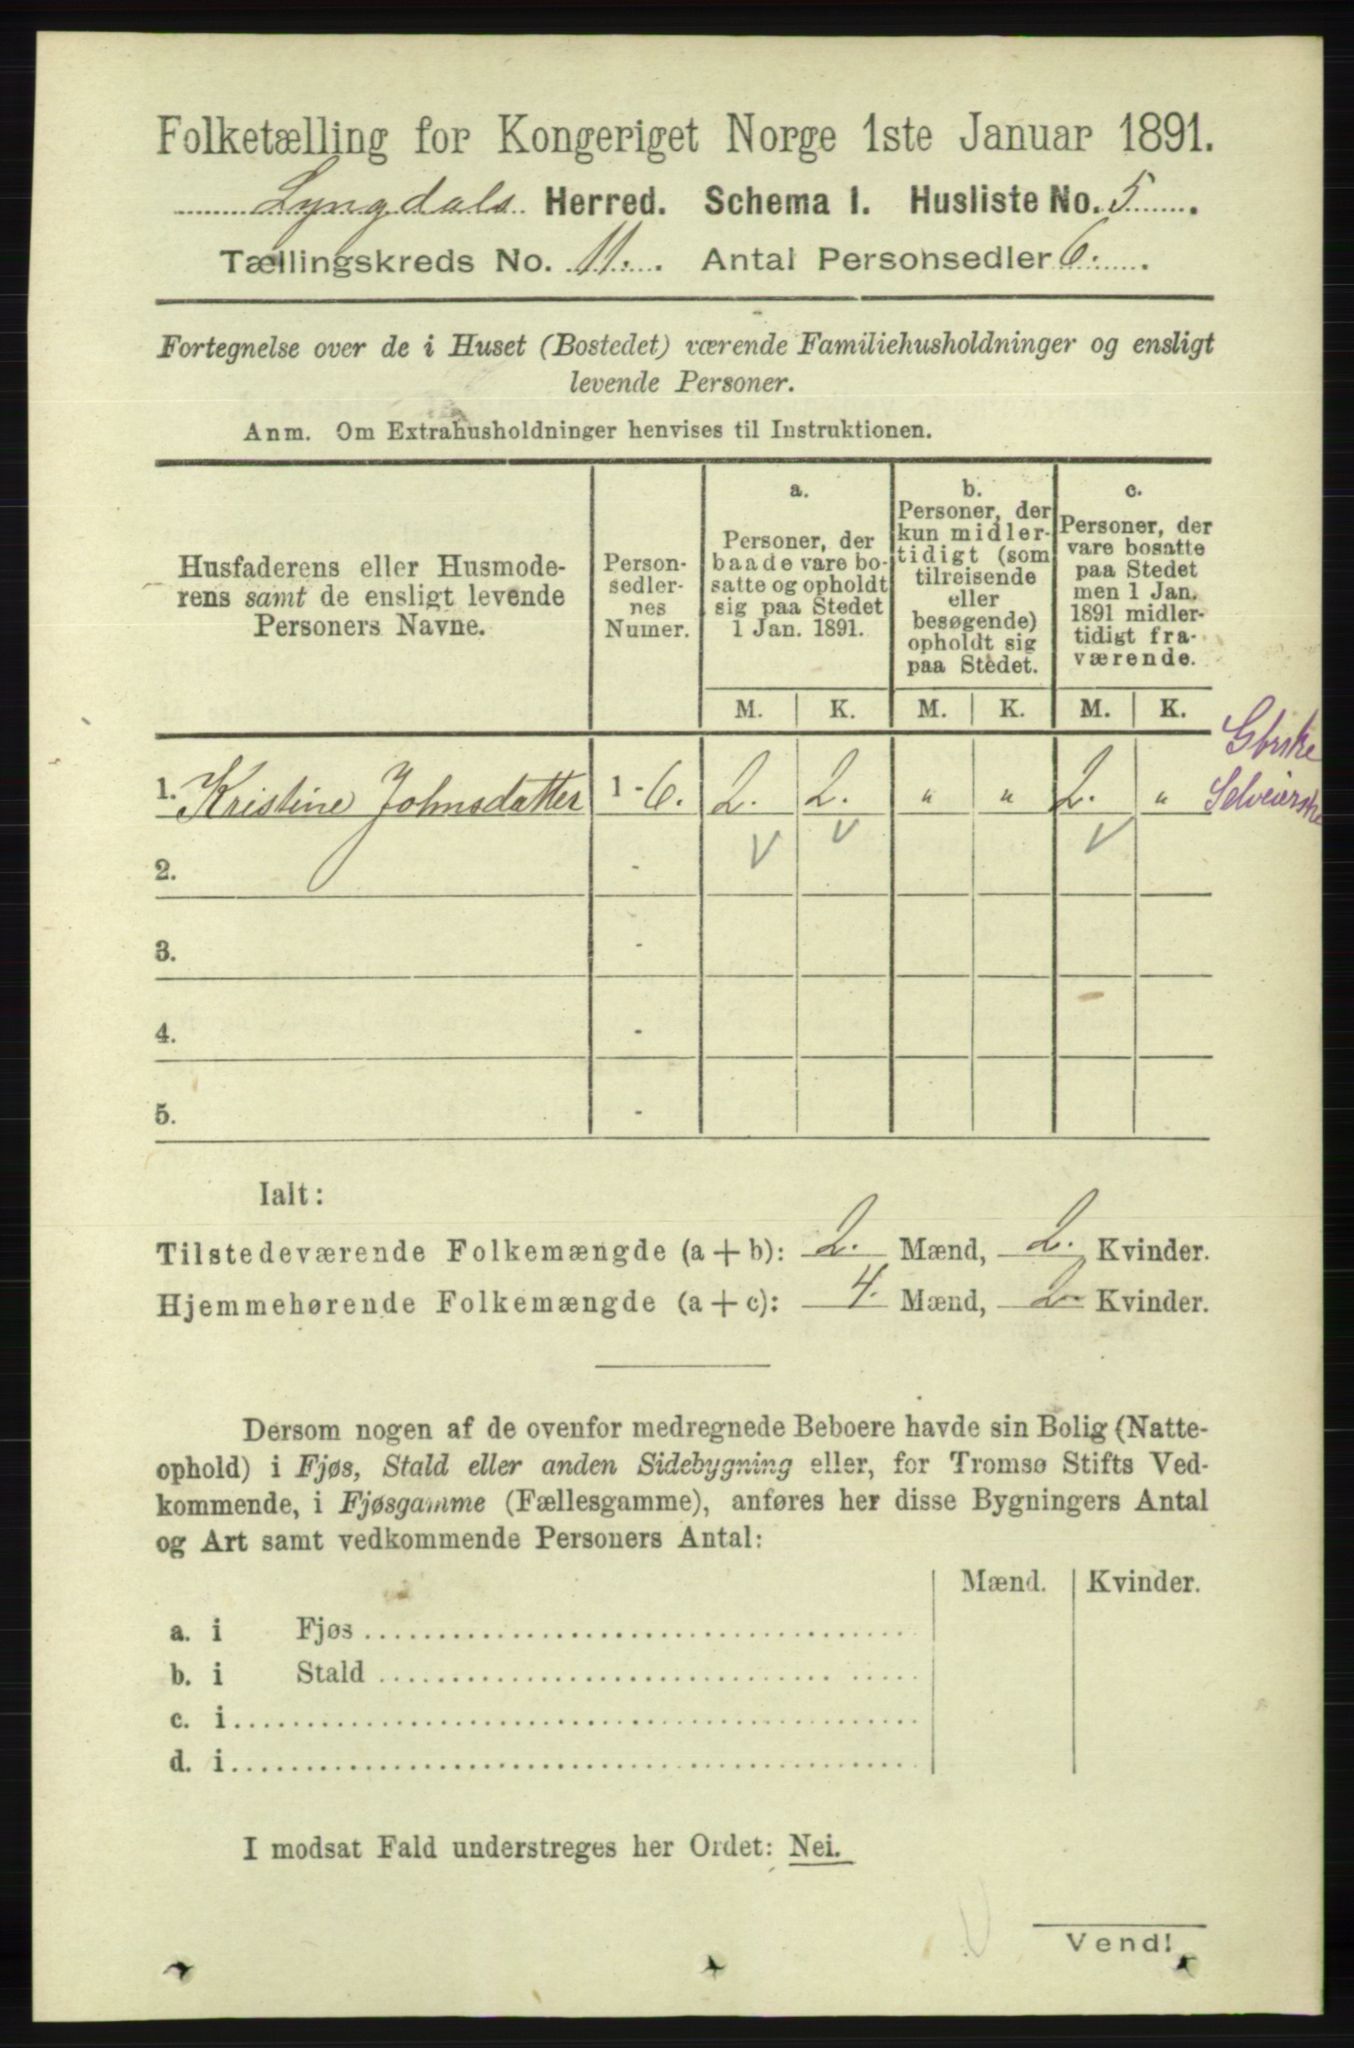 Folketælling for Kongeriget Norge 1ste Januar 1891.
Lyngdals Herred. Schema I. Husliste No. 5
Tællingskreds No. 11. Antal Personsedler 6.
Fortegnelse over de i Huset (Bostedet) værende Familiehusholdninger og ensligt
levende Personer.
Anm. Om Extrahusholdninger henvises til Instruktionen.
Husfaderens eller Husmode-
rens samt de ensligt levende
Personers Navne.
Person-
sedler-
nes
Numer.
a.
Personer, der
baade vare bo-
satte og opholdt
sig paa Stedet
1 Jan. 1891.
b.
Personer, der
kun midler-
tidigt (som
tilreisende
eller
besøgende)
opholdt sig
paa Stedet.
c.
Personer, der
vare bosatte
paa Stedet
men 1 Jan.
1891 midler-
tidigt fra-
værende.
M. K. M. K. M. K.
1. Kristine Johnsdatter 1 - 6. 2. 2. " " 2. "
Gbrske
Selveierske
2. -
3. -
4. -
5. -
Ialt:
Tilstedeværende Folkemængde (a + b): 2. Mænd, 2. Kvinder.
Hjemmehørende Folkemængde (a + c): 4. Mænd, 2. Kvinder.
Dersom nogen af de ovenfor medregnede Beboere havde sin Bolig (Natte-
ophold) i Fjøs, Stald eller anden Sidebygning eller, for Tromsø Stifts Ved-
kommende, i Fjøsgamme (Fællesgamme), anføres her disse Bygningers Antal
og Art samt vedkommende Personers Antal:
Mænd. Kvinder.
a. i Fjøs
b. i Stald
c. i
d. i
I modsat Fald understreges her Ordet: Nei.
Vend!